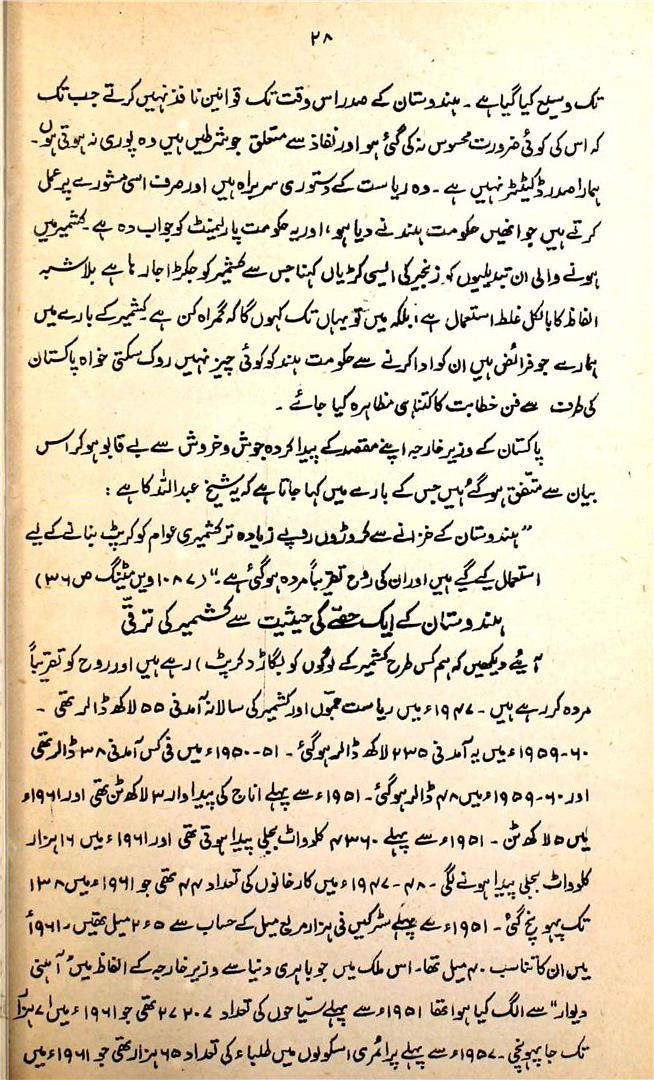 ۲۸
تک وسیع کیا گیا ہے۔ ہندوستان کے صدر اس وقت تک قوانین نافذ نہیں کرتے جب تک
کہ اس کی کوئی ضرورت محسوس نہ کی گئی ہو اور نفاذ سے متعلق جو شرطیں ہیں وہ پوری نہ ہوتی ہوں۔
ہمارا صدر ڈکٹیٹر نہیں ہے۔ وہ ریاست کے دستوری سربراہ ہیں اور صرف اسی مشورے پر عمل
کرتے ہیں جو انھیں حکومت ہند نے دیا ہو، اور یہ حکومت پارلیمنٹ کو جواب دہ ہے۔ کشمیر میں
ہونے والی ان تبدیلیوں کو زنجیر کی ایسی کڑیاں کہنا جس سے کشمیر کو جکڑا جا رہا ہے بلاشبہ
الفاظ کا بالکل غلط استعمال ہے، بلکہ میں تو یہاں تک کہوں گا کہ گمراہ کن ہے۔ کشمیر کے بارے میں
ہمارے جو فرائض ہیں ان کو ادا کرنے سے حکومت ہند کو کوئی چیز نہیں روک سکتی خواہ پاکستان
کی طرف سے فن خطابت کا کتنا ہی مظاہرہ کیا جائے۔
پاکستان کے وزیر خارجہ اپنے مقصد کے پیدا کردہ جوش و خروش سے بے قابو ہو کر اس
بیان سے متفق ہو گئے ہیں جس کے بارے میں کہا جاتا ہے کہ یہ شیخ عبداللہ کا ہے:
”ہندوستان کے خزانے سے کروڑوں روپے زیادہ تر کشمیری عوام کو کرپٹ بنانے کے لیے
استعمال کیے گیے ہیں اور ان کی روح تقریباً مردہ ہو گئی ہے۔“ (۱۰۸۷ ویں میٹنگ ص ۳۶)
ہندوستان کے ایک حصے کی حیثیت سے کشمیر کی ترقی
آیئے دیکھیں کہ ہم کس طرح کشمیر کے لوگوں کو بگاڑ (کرپٹ) رہے ہیں اور روح کو تقریباً
مردہ کر رہے ہیں۔ ۱۹۴۷ء میں ریاست جموں اور کشمیر کی سالانہ آمدنی ۵۵ لاکھ ڈالر تھی۔
۶۰-۱۹۵۹ء میں یہ آمدنی ۲۳۵ لاکھ ڈالر ہو گئی۔ ۵۱-۱۹۵۰ء میں فی کس آمدنی ۳۸ ڈالر تھی
اور ۶۰-۱۹۵۹ء میں ۴۸ ڈالر ہو گئی۔ ۱۹۵۱ء سے پہلے اناج کی پیداوار ۳ لاکھ ٹن تھی اور ۱۹۶۱ء
میں ۵ لاکھ ٹن۔ ۱۹۵۱ء سے پہلے ۴۳۶۰ کلوواٹ بجلی پیدا ہوتی تھی اور ۱۹۶۱ء میں ۱۶ ہزار
کلوواٹ بجلی پیدا ہونے لگی۔ ۴۸-۱۹۴۷ء میں کارخانوں کی تعداد ۴۴ تھی جو ۱۹۶۱ء میں ۱۳۸
تک پہونچ گئی۔ ۱۹۵۱ء سے پہلے سڑکیں فی ہزار مربع میل کے حساب سے ۲۶۵ میل تھیں۔ ۱۹۶۱ء
میں ان کا تناسب ۴۰ میل تھا۔ اس ملک میں جو باہری دنیا سے وزیر خارجہ کے الفاظ میں ”آہنی
دیوار“ سے الگ کیا ہوا تھا ۱۹۵۱ء سے پہلے سیاحوں کی تعداد ۲۷۲۰۷ تھی جو ۱۹۶۱ء میں ۷۱ ہزار
تک جا پہونچی۔ ۱۹۵۷ء سے پہلے پرائمری اسکولوں میں طلباء کی تعداد ۶۵ ہزار تھی جو ۱۹۶۱ء میں